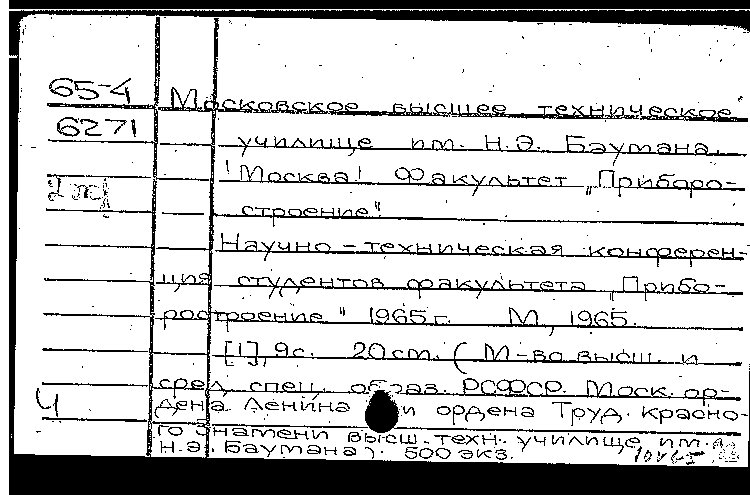 65-4 Московское высшее техническое
6271 училище им. Н.Э. Баумана.
!Москва! Факультет „Приборо-
2
строение"
Научно-техническая конферен-
ция студентов факультета „Прибо-
ростроение" 1965г. М, 1965.
[1], 9с. 20см. (М-во высш. и
сред. спец. образ. РСФСР. Моск. ор-
Ч дена Ленина и ордена Труд. красно-
го Знамени высш. техн. училище им.
Н.Э. Баумана). 500 экз.